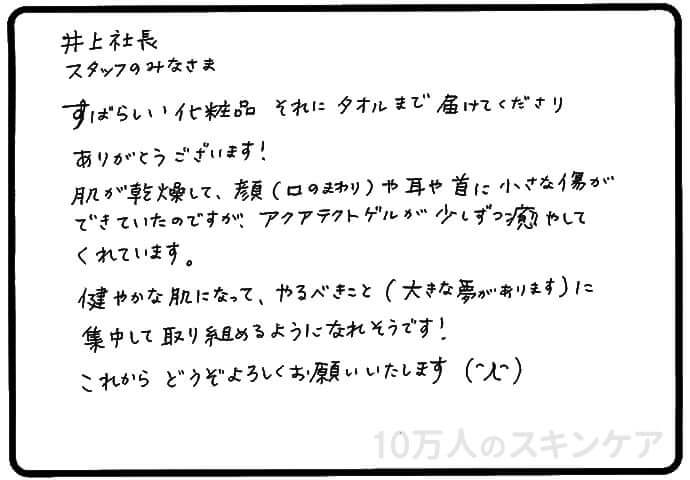 井上社長
スタッフのみなさま
すばらしい化粧品 それに タオルまで 届けてくださり
ありがとうございます!
肌が乾燥して、顔(口のまわり)や耳や首に小さな傷が
できていたのですが、アクアテクトゲルが少しずつ癒やして
くれています。
健やかな肌になって、やるべきこと(大きな夢があります)に
集中して取り組めるようになれそうです!
これから どうぞよろしくお願いいたします (^人^)
10万人のスキンケア